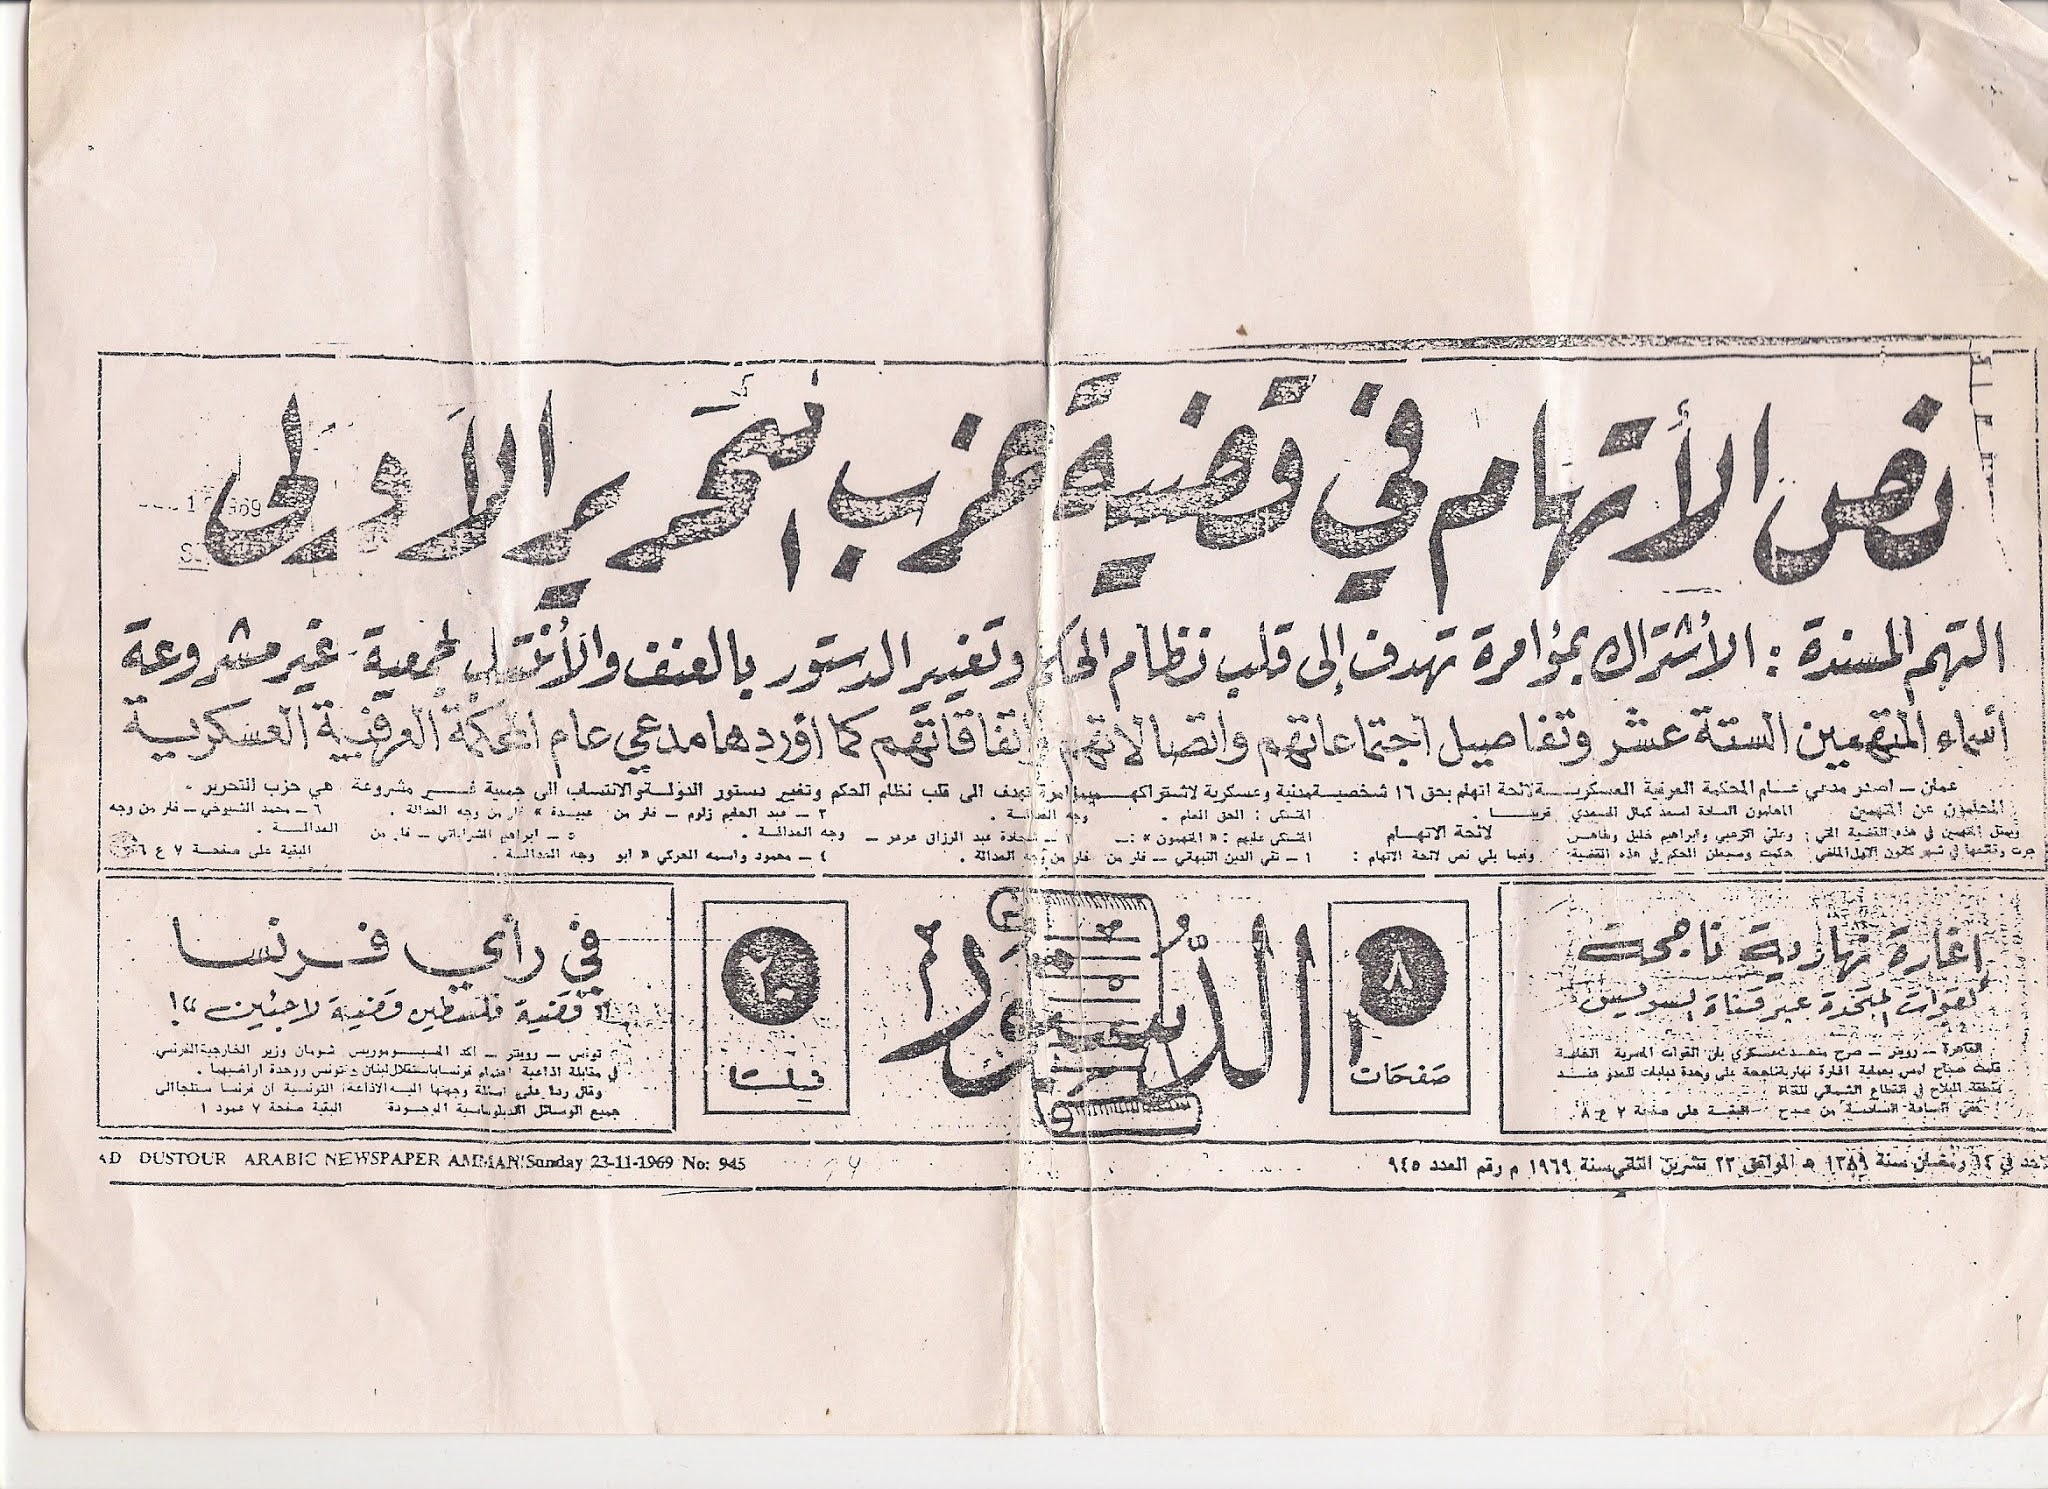 نص الأتهام في قضية حزب التحرير الاولى
التهم المسندة : الأشتراك بمؤامرة تهدف إلى قلب نظام الحكم وتغيير الدستور بالعنف والأنتساب لجمعية غير مشروعة
أسماء المتهمين الستة عشر وتفاصيل اجتماعاتهم واتصالاتهم واتفاقاتهم كما اوردها مدعي عام المحكمة العرفية العسكرية
عمان – اصدر مدعي عام المحكمة العرفية العسكرية لائحة اتهام بحق ١٦ شخصية مدنية وعسكرية لاشتراكهم بمؤامرة تهدف الى قلب نظام الحكم وتغيير دستور الدولة والانتساب الى جمعية غير مشروعة هي حزب التحرير .
المحامون عن المتهمين
ويمثل المتهمين في هذه القضية التي
جرت وقائعها في شهر كانون الاول الماضي
المحامون السادة اسعد كمال الصمدي
وعلي الزعبي وابراهيم خليل
الحكم في هذه القضية
قريبا .
لائحة الاتهام
وفيما يلي نص لائحة الاتهام :
المشتكى : الحق العام .
المشتكى عليهم : « المتهمون » :ــ
١ – تقي الدين النبهاني – فار من وجه العدالة .
٢ – عبد الرزاق عرعر – فار من وجه العدالة .
٣ – عبد الحليم زلوم – فار من وجه العدالة .
٤ – محمود واسمه الحركي « ابو عبيدة » فار من وجه العدالة .
٥ – ابراهيم الشراباتي – فار من وجه العدالة .
٦ – محمد الشيوخي – فار من وجه العدالة .
البقية على صفحة ٧ ع ٦
اغارة نهارية ناجحة
لقوات المتحدة عبر قناة السويس
القاهرة – رويتر – صرح متحدث عسكري بان القوات المصرية الخاصة
قامت صباح امس بعملية اغارة نهارية ناجحة على وحدة دبابات للعدو عند
منطقة البلاح في القطاع الشمالي للقناة
الساعة السادسة من صباح
البقية على صفحة ٧ ع ٨
٨
صفحات
الدستور
٢٠
فلسا
في رأي فرنسا
" قضية فلسطين قضية لاجئين "!
تونس – رويتر – اكد المسيو موريس شومان وزير الخارجية الفرنسي
في مقابلة اذاعية اهتمام فرنسا باستقلال لبنان وتونس ووحدة اراضيهما .
وقال ردا على اسئلة وجهتها اليه الاذاعة التونسية ان فرنسا ستلجأ الى
جميع الوسائل الدبلوماسية الموجودة
البقية صفحة ٧ عمود ١
في ١٤ رمضان سنة ١٣٨٩ هـ الموافق ٢٣ تشرين الثاني سنة ١٩٦٩ م رقم العدد ٩٤٥
AD DUSTOUR ARABIC NEWSPAPER AMMAN Sunday 23-11-1969 No: 945